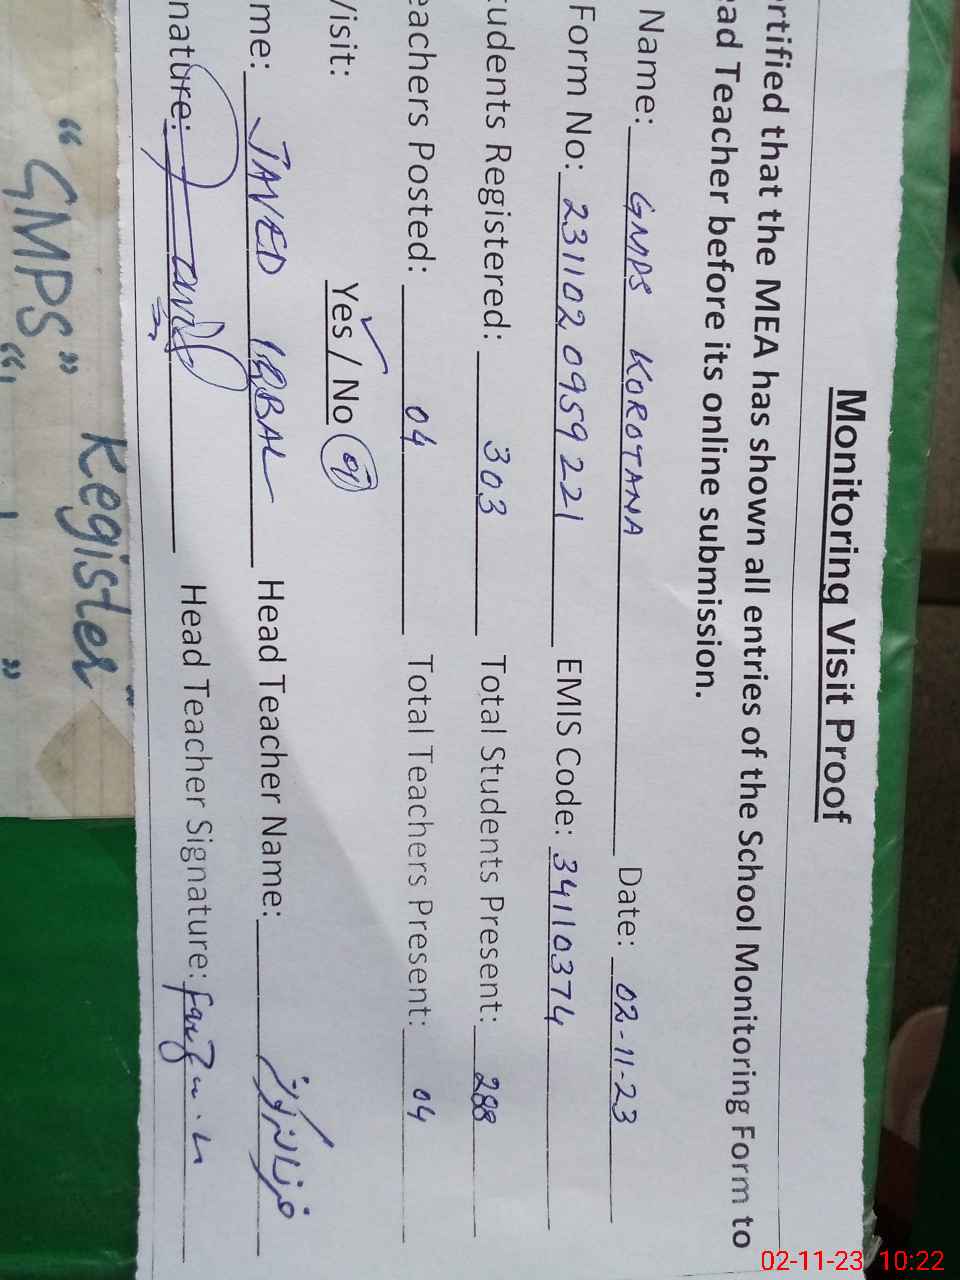 Monitoring Visit Proof
rtified that the MEA has shown all entries of the School Monitoring Form to
ad Teacher before its online submission.
Name: GMPS KOROTANA Date: 02-11-23
Form No: 231102 0959 221 EMIS Code: 34110374
tudents Registered: 303 Total Students Present: 288
eachers Posted: 04 Total Teachers Present: 04
Visit: Yes / No
me: JAVED IQBAL Head Teacher Name:
nature: Javed Head Teacher Signature:
"GMPS"
Register
02-11-23 10:22